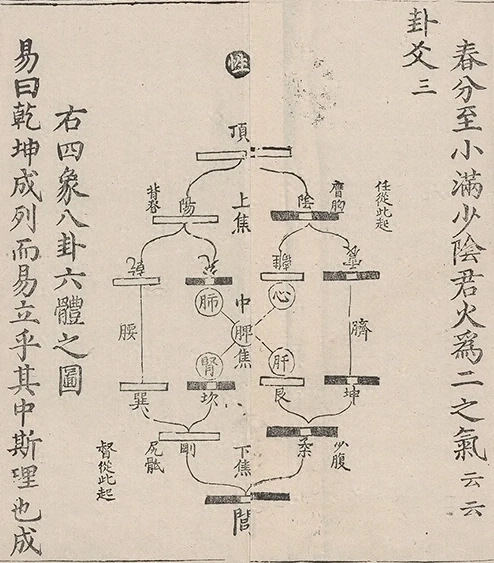 春分至小滿少陰君火爲二之氣云云
卦爻三
任從此起
膺胸
陰
震
離
臍
心
肝
坤
艮
少腹
柔
頂
上焦
中脾焦
下焦
陽
背脊
兌
乾
肺
腎
腰
坎
巽
剛
尻骶
督從此起
右四象八卦六體之圖
易曰乾坤成列而易立乎其中斯理也成